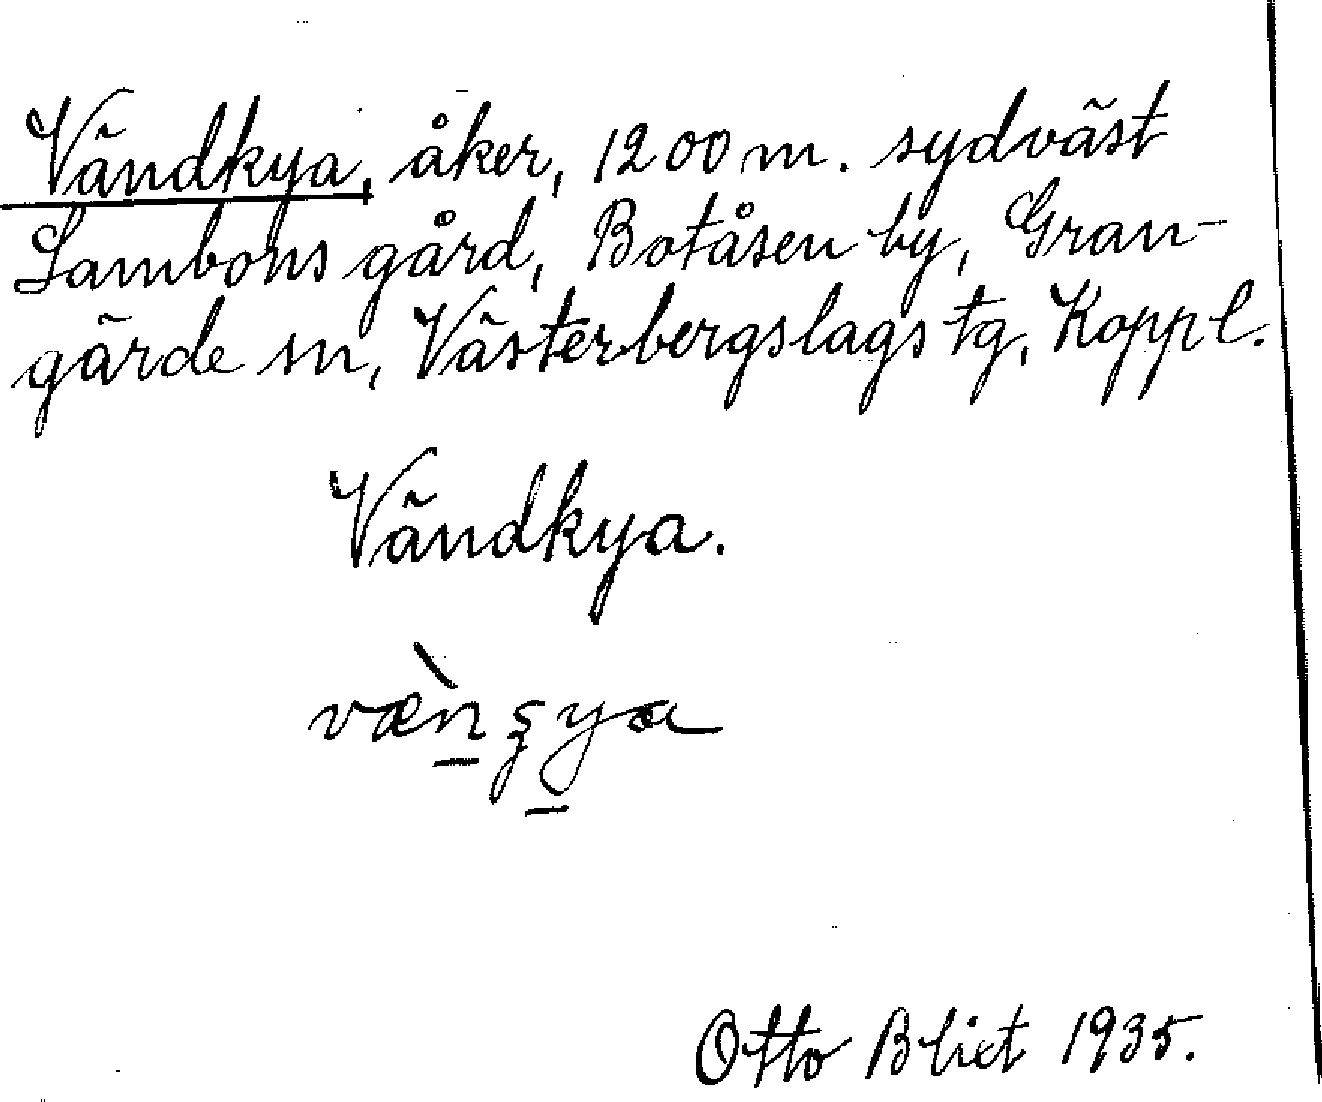 Vändkya, åker, 1200 m. sydväst
Lambons gård, Botåsen by, Gran-
gärde sn, Västerbergslags tg, Koppl.
Vändkya.
væ̀n̲ȿy̲a
Otto Blixt 1935.